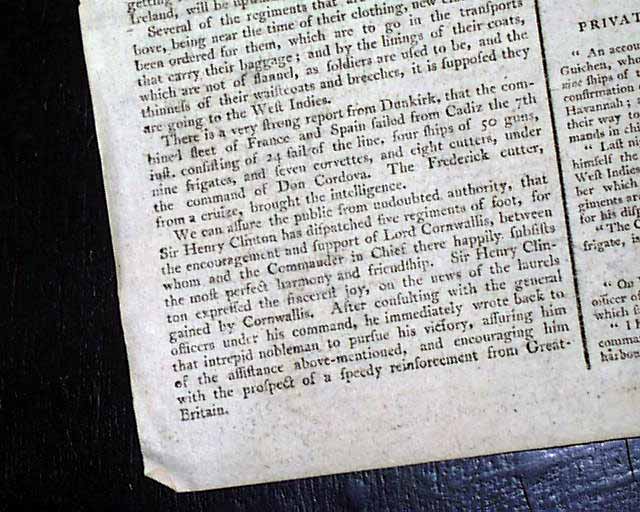 getting
Ireland, will be
Several of the regiments that are
bove, being near the time of their clothing, new
been ordered for them, which are to go in the transports
that carry their baggage; and by the linings of their coats,
which are not of flannel, as ſoldiers are uſed to be, and the
thinneſs of their waiſtcoats and breeches, it is ſuppoſed they
are going to the Weſt Indies.
There is a very ſtrong report from Dunkirk, that the com-
bined fleet of France and Spain ſailed from Cadiz the 7th
inſt. conſiſting of 24 ſail of the line, four ſhips of 50 guns,
nine frigates, and ſeven corvettes, and eight cutters, under
the command of Don Cordova. The Frederick cutter,
from a cruize, brought the intelligence.
We can aſſure the public from undoubted authority, that
Sir Henry Clinton has diſpatched five regiments of foot, for
the encouragement and ſupport of Lord Cornwallis, between
whom and the Commander in Chief there happily ſubſiſts
the moſt perfect harmony and friendſhip. Sir Henry Clin-
ton expreſſed the ſincereſt joy, on the news of the laurels
gained by Cornwallis. After conſulting with the general
officers under his command, he immediately wrote back to
that intrepid nobleman to purſue his victory, aſſuring him
of the aſſiſtance above-mentioned, and encouraging him
with the proſpect of a ſpeedy reinforcement from Great-
Britain.
PRIVAT
" An accou
Guichen, who
nine ſhips of
confirmation
Havannah;
their way to
mands in ch
" Laſt n
himſelf the
Weſt Indies
ber which
giments ar
for his diſ
" The C
frigate, is
" On
officer
which
" I
comma
harbo